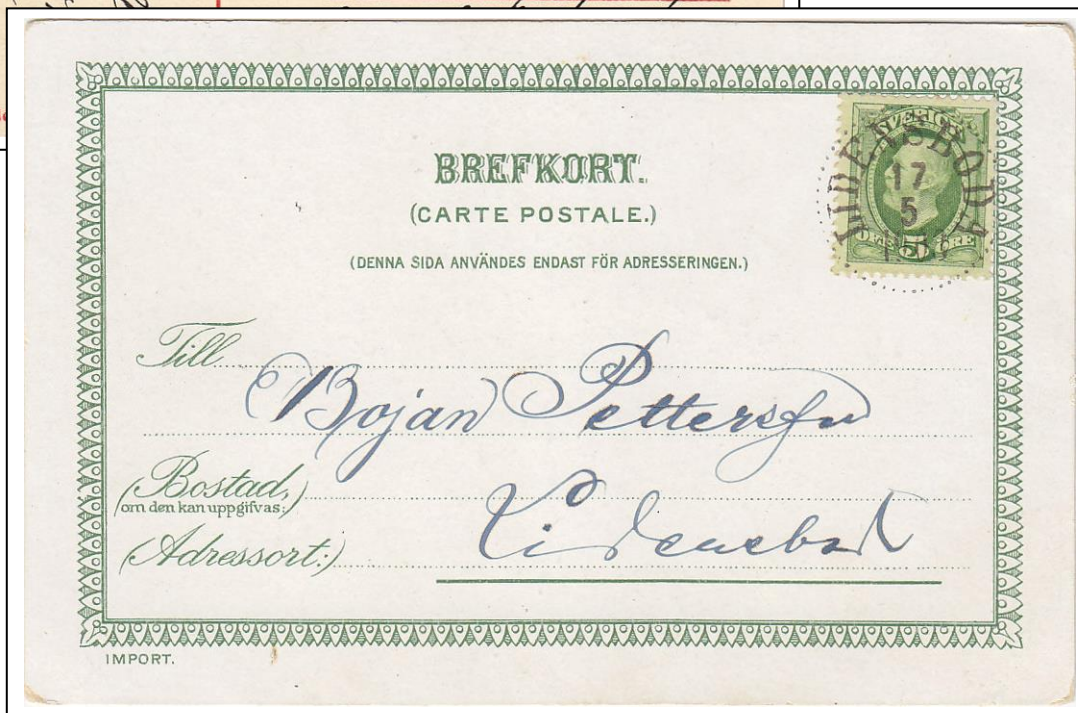 BREFKORT.
(CARTE POSTALE.)
(DENNA SIDA ANVÄNDES ENDAST FÖR ADRESSERINGEN.)
SVERIGE
LIDENSBODA
17
5
5 ÖRE
Till
Bojan Petterson
(Bostad,
om den kan uppgifvas:)
Lidensbod
(Adressort:)
IMPORT.